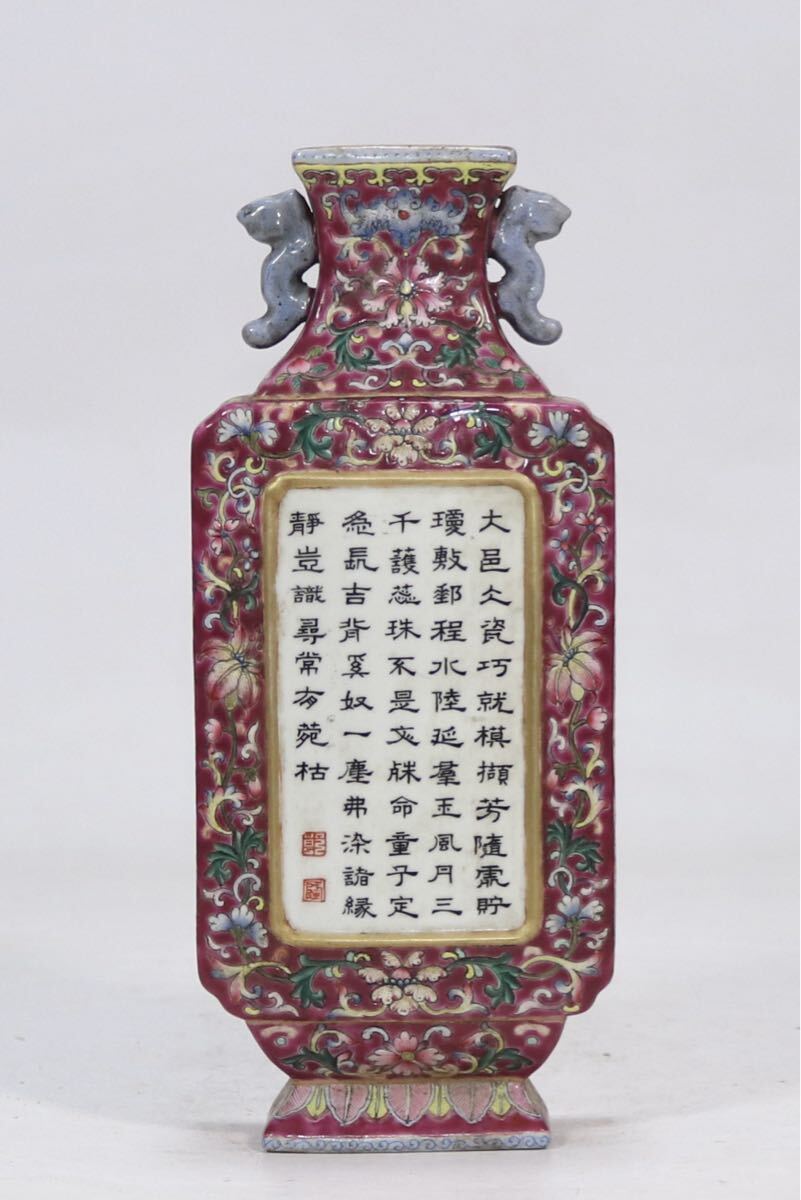 大邑仌瓷巧就模擷芳隨處貯
瓊敷郵程水陸延羣玉風月三
千護蕊珠不是文殊命童子定
急長吉背奚奴一塵弗染諸緣
靜豈識尋常有菀枯